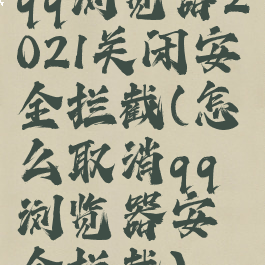 qq浏览器2
021关闭安
全拦截(怎
么取消qq
浏览器安
全拦截)